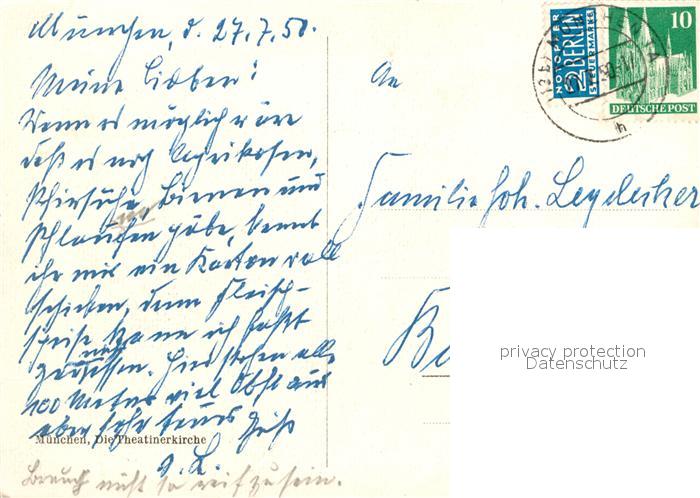 München, d. 27.7.50.
Meine Lieben!
Wenn es möglich wäre
daß es noch Aprikosen,
Pfirsiche, Birnen und
Pflaumen gäbe, könnt
ihr mir ein Karton voll
schicken, denn Fleisch-
speise kann ich fast
nicht
essen. Hier stehen alle
100 Meter viel Obst aus
aber sehr teuer Gruß
München, Die Theatinerkirche
Brauch nicht so reif zu sein.
An
Familie Joh. Leydecker
NOTOPFER
2 BERLIN
STEUERMARKE
10
DEUTSCHE POST
privacy protection
Datenschutz